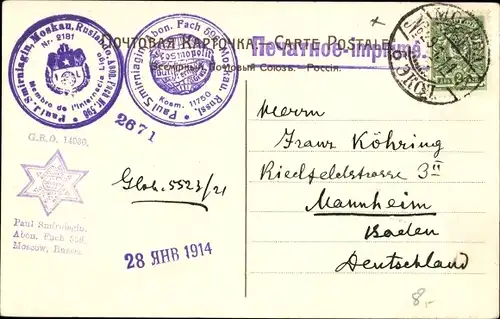 Paul Smirniagin, Moskau, Russland, Abon. Fach No. 596
Nr. 2181
Membro de l'Internacia
Paul Smirniagin, Abon. Fach 596, Moskau, Russl.
Kosm. 11750
ПОЧТОВАЯ КАРТОЧКА. — CARTE POSTALE
Печатное-Imprimé
Всемірный Почтовый Союзъ. Россія.
2671
G.E.O. 14080.
Paul Smirniagin.
Abon. Fach 596.
Moscow, Russia.
Glob. 5523/21
28 ЯНВ 1914
Herrn
Franz Köhring
Riedfeldstrasse 3II
Mannheim
Baden
Deutschland
8,-